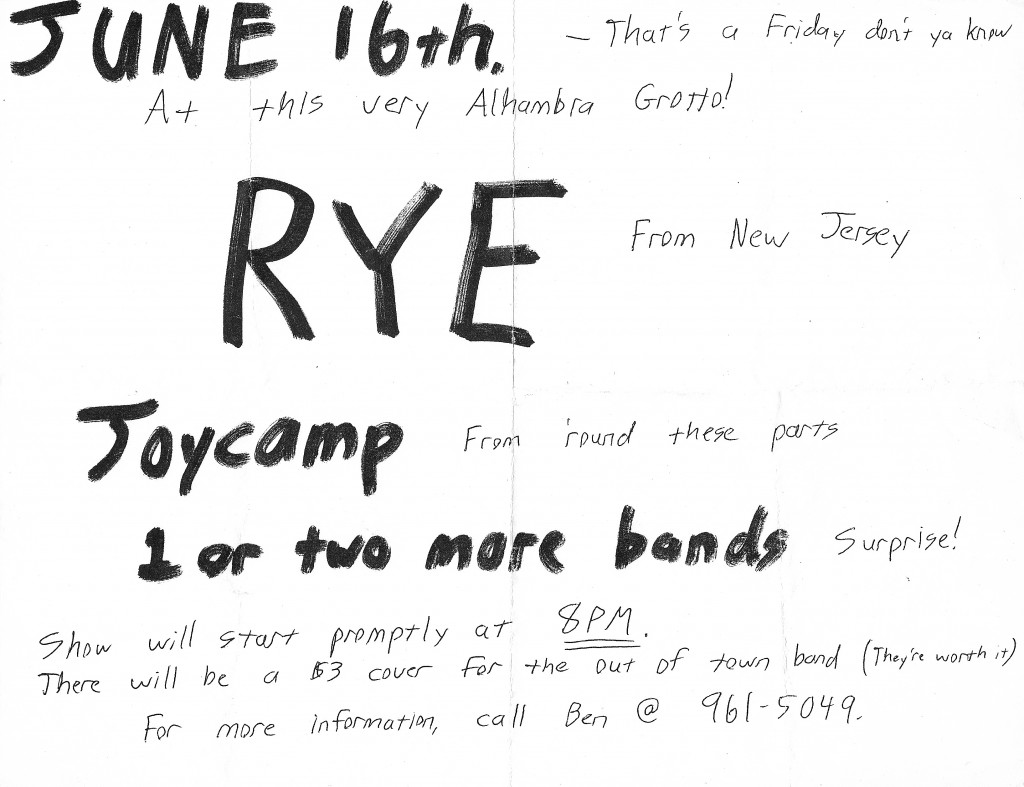 JUNE 16th. — That's a Friday don't ya know
At this very Alhambra Grotto!
RYE From New Jersey
Joycamp From 'round these parts
1 or two more bands Surprise!
Show will start promptly at 8PM.
There will be a $3 cover for the out of town band (They're worth it)
For more information, call Ben @ 961-5049.